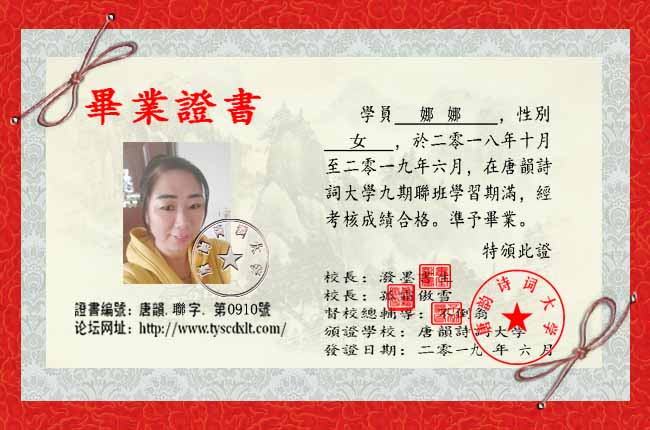 畢業證書
學員 娜 娜 ，性別
女 ，於二零一八年十月
至二零一九年六月，在唐韻詩
詞大學九期聯班學習期滿，經
考核成績合格。準予畢業。
特頒此證
證書編號：唐韻. 聯字. 第0910號
论坛网址：http://www.tyscdxlt.com/
校長：潑墨書生
校長：孤霜傲雪
督校總輔導：不倒翁
頒證學校：唐韻詩詞大學
發證日期：二零一九 年 六 月
唐韵诗词大学